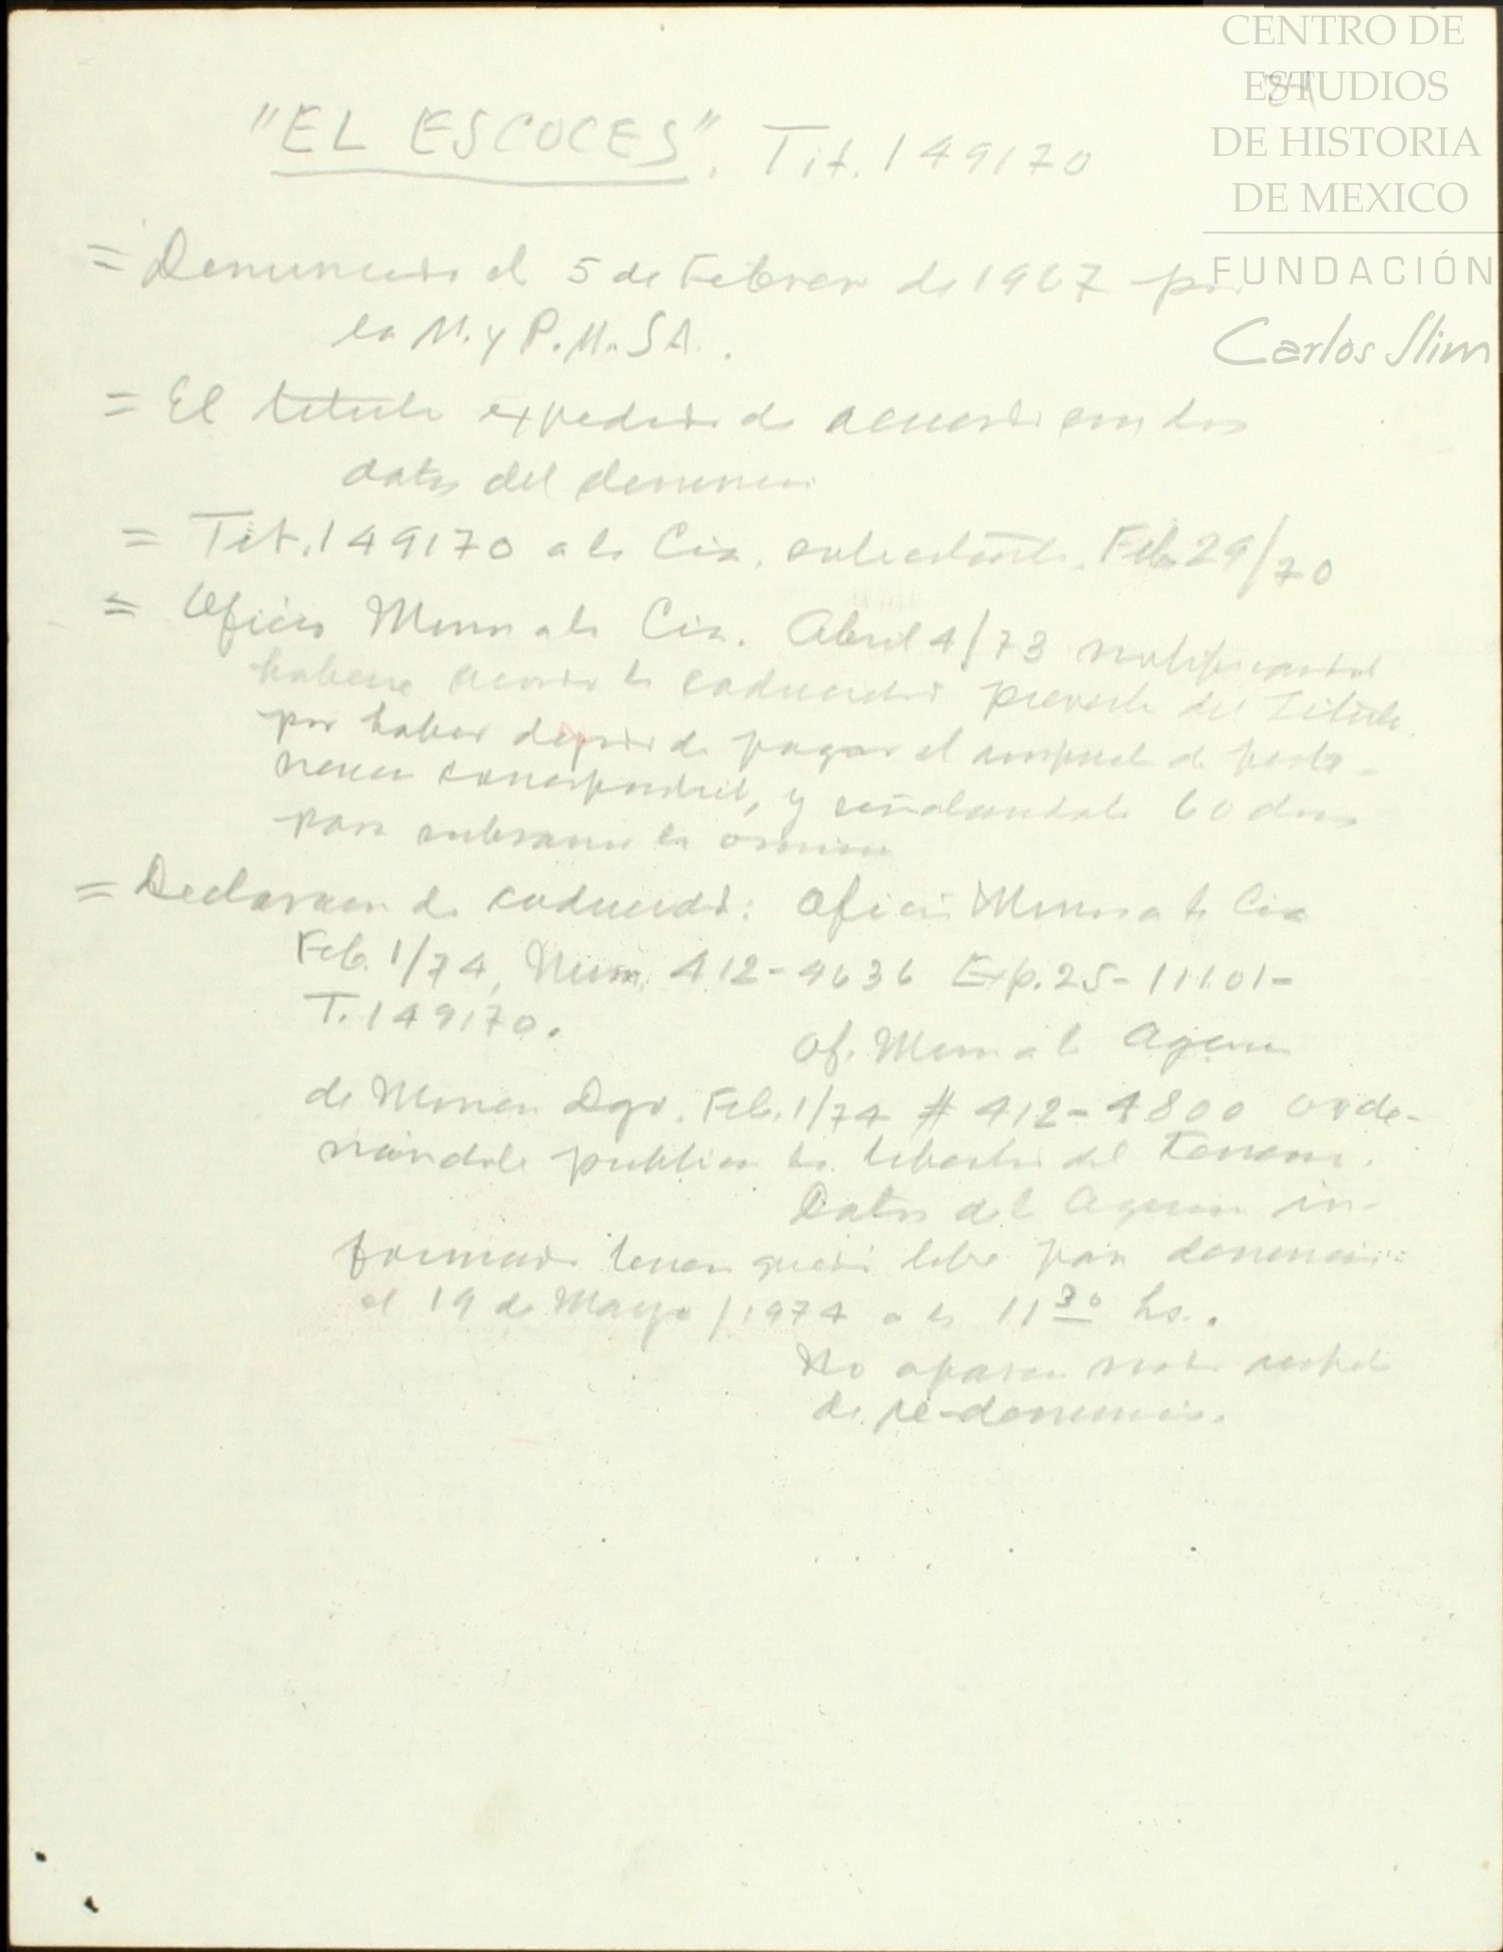 CENTRO DE
ESTUDIOS
DE HISTORIA
DE MEXICO
FUNDACIÓN
Carlos Slim
"EL ESCOCES". Tit. 149170
= Denunciado el 5 de Febrero de 1967 por
la M. y P. M. S A.
= El título expedido de acuerdo con los
datos del denuncio
= Tit. 149170 a la Cia. Feb 29/70
= Oficio Minas a la Cia. Abril 4/73 notificando
haberse la caducidad del Título
por haber dejado de pagar el impuesto de perte-
nencia correspondiente, y señalandole 60 dias
para subsanar la omision
= Declaracion de caducidad: Oficio Minas a la Cia
Feb. 1/74, Núm. 412-4636 Exp. 25-11101-
T. 149170.
Of. Minas a la Agencia
de Mineria Dgo. Feb. 1/74 # 412-4800 orde-
nándole publicar la libertad del terreno.
Datos de l Agencia in-
formando terreno quedó libre para denuncio:
el 19 de Mayo/1974 a las 11 30 hs.
No aparece nota
de re-denuncio.